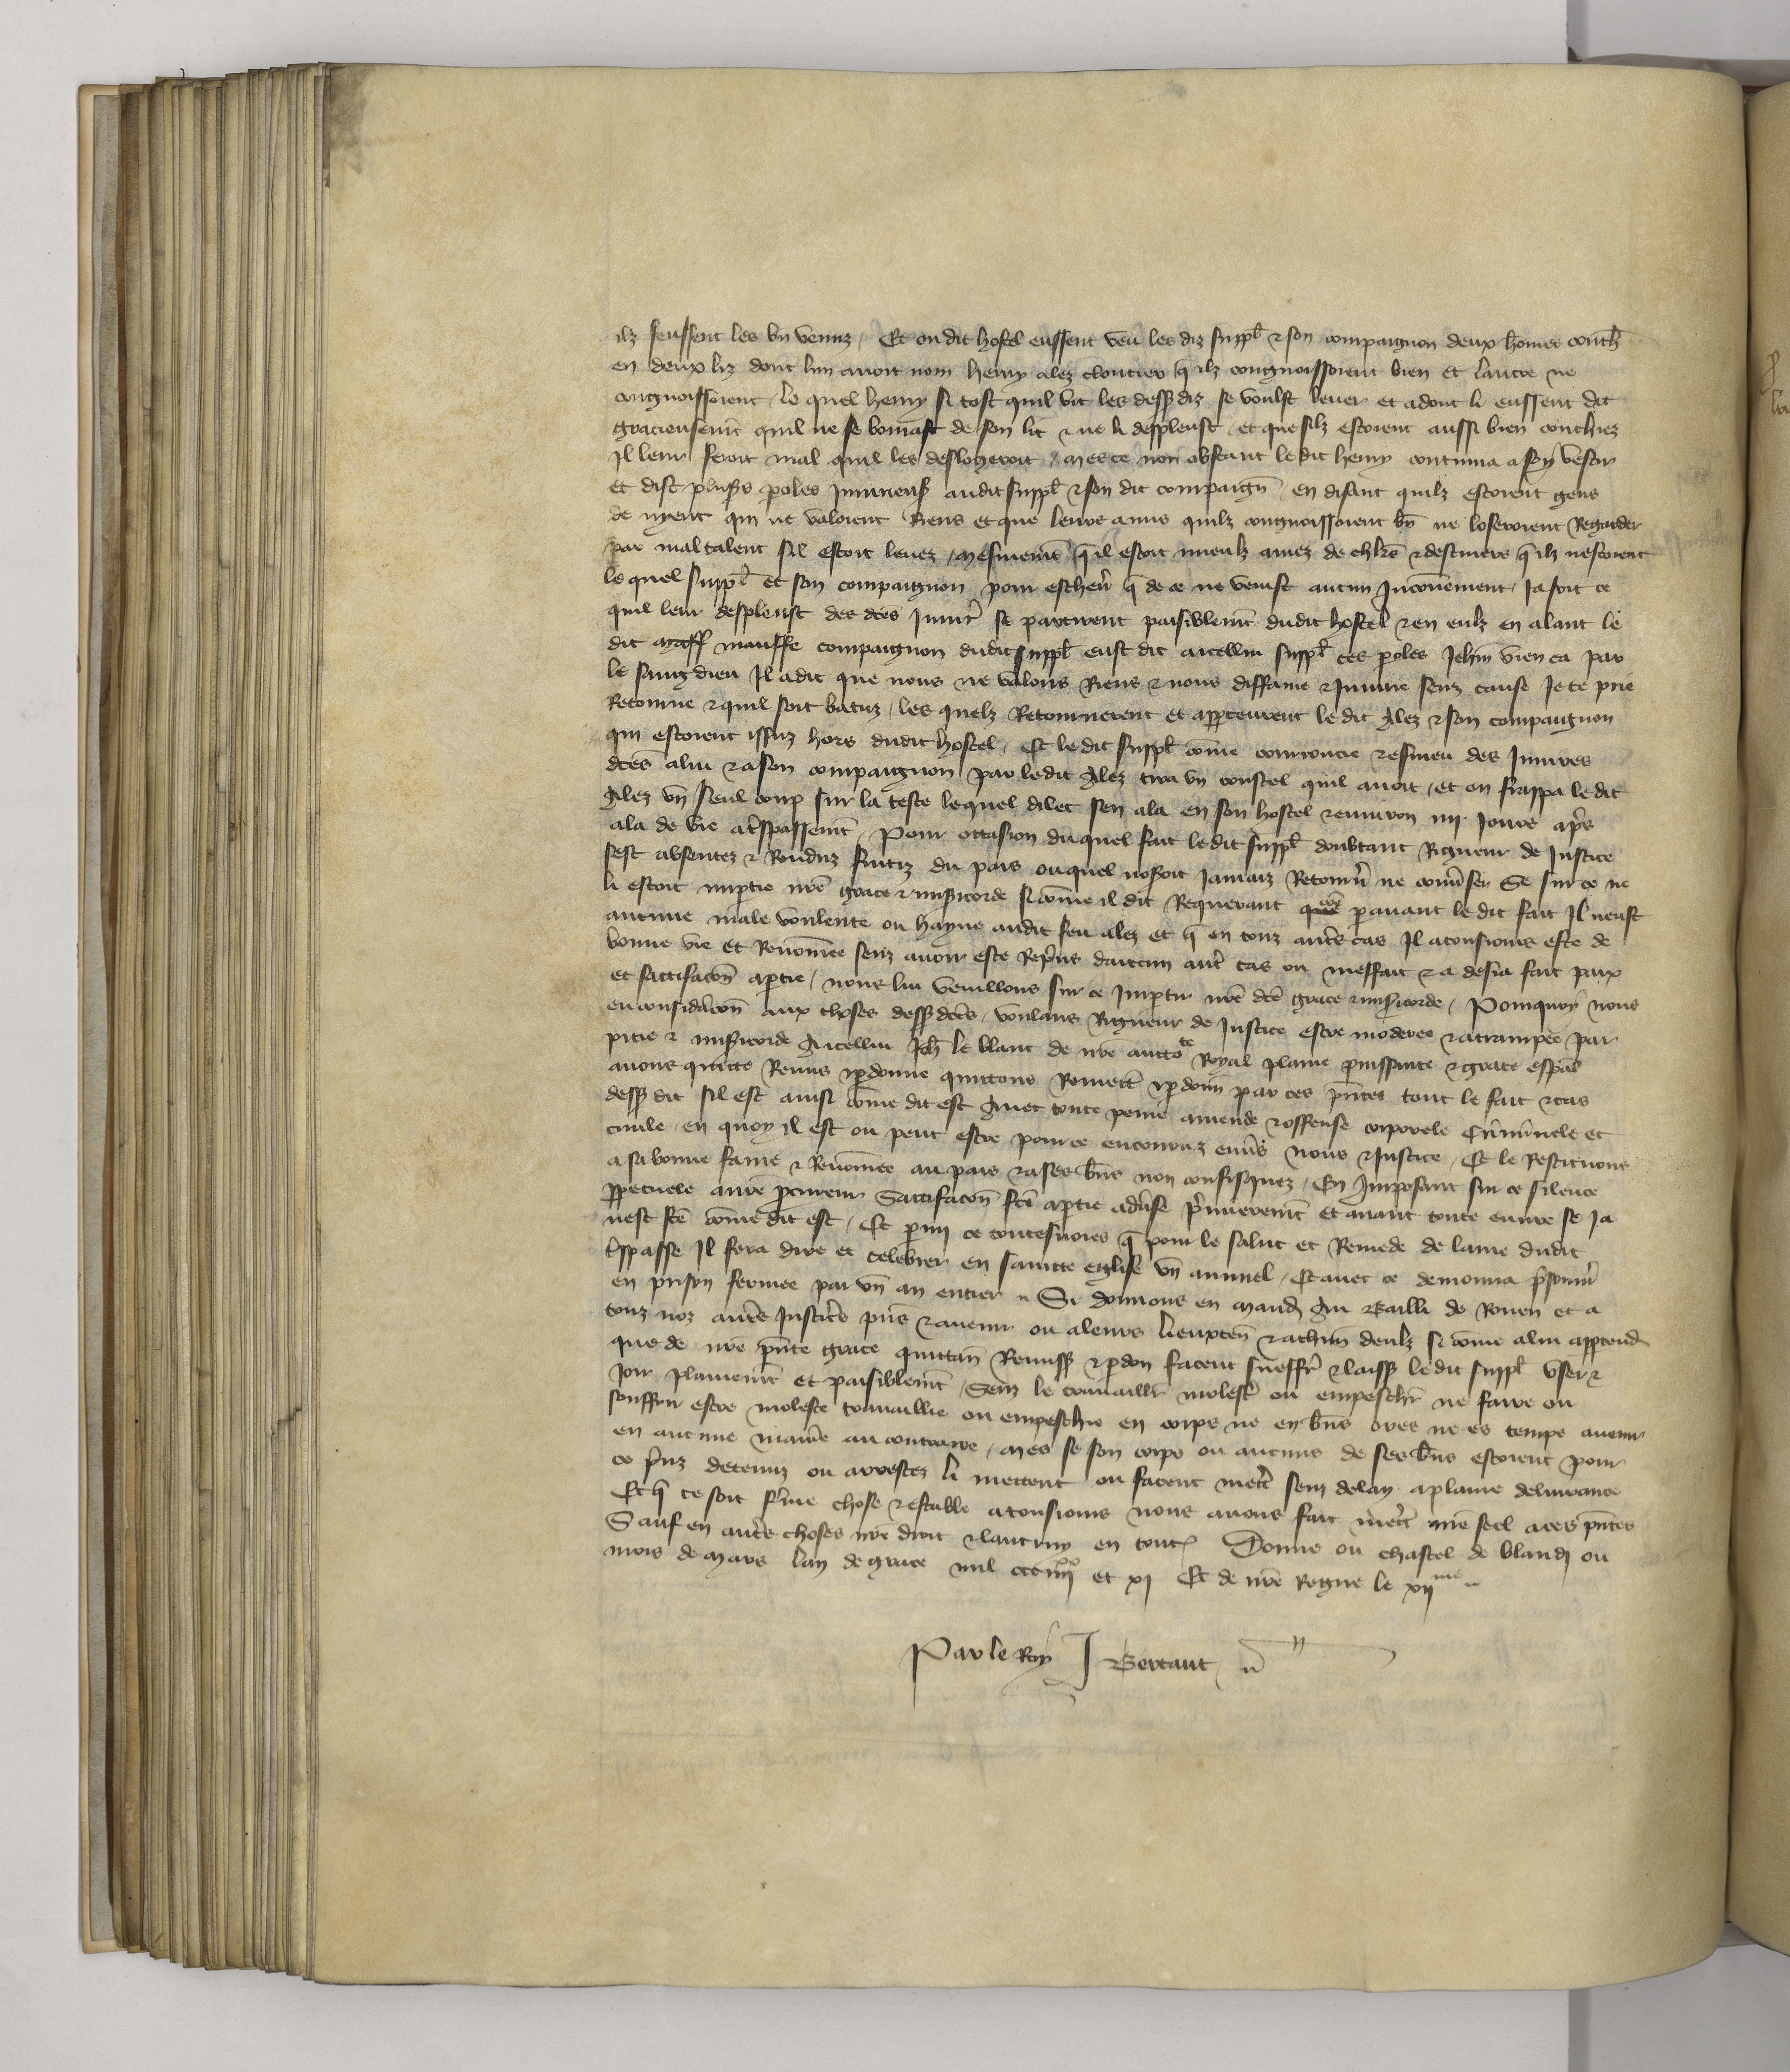 ilz feussent les bn̄ venuz / Et ou dit hostel eussent veu les diz suppl̄ & son compaignon deux hōmes couch̄
en deux liz dont lun auoit nom henry alez cloutier q̄ ilz congnoissoient bien et lautre ne
congnoissoient / le quel henry si tost quil vit les dessꝰ diz se voulst leuer et adont li eussent dit
gracieusemt̄ quil ne se boniast de son lit & ne li despleust / et que silz estoient aussi bien couchiez
Il leur feroit mal quil les deslogeroit / mes ce non obstant le dit henry continua a soy vestir
et dist plusꝰs p̄oles Iniurieusꝭ audit suppl̄ & son dit compaign̄ en disant quilz estoient gens
de nyent qui ne valoient Riens et que leurs amis quilz congnoissoient bn̄ ne loseroient Regarder
par mal talent sil estoit leuez / mesmemt̄ q̄ il estoit mieulx amez de chlr̄s & descuiers q̄ ilz nestoient
le quel suppl̄ et son compaignon pour escheu᷑ q̄ de ce ne venist aucun Inconuēnient / Ia soit ce
quil leur despleust des dc̄es Iniur᷑ se partirent paisiblemt̄ dudit hostel & en eulx en alant le
dit mauffe compaignon dudit suppl̄ eust dit a icellui suppl̄ ces p̄oles Jehan vien ca par
le sang dieu Il a dit que nous ne valons Riens & nous diffame & Iniurie senz cause Ie te prie
Retourne & quil soit batuz / les quelz Retournerent et app̄ceurent le dit Alez & son compaignon
qui estoient issuz hors dudit hostel / Et le dit suppl̄ cōme courroucie & esmeu des Iniures
dc̄es a lui & a son compaignon par le dit Alez tira vn coustel quil auoit / et en frappa le dit
Alez vn̄ seul coup sur la teste lequel dilec sen ala en son hostel & enuiron iiij Jours ap̄s
ala de vie a tr̄spassemt̄ / Pour occasion du quel fait le dit suppl̄ doubtant Rigueur de Justice
sest absentez & Renduz fuitiz du pais ou quel nosoit Iamaiz Retourn᷑ ne conu᷑ser Se sur ce ne
li estoit imp̄tie nr̄e grace & mis̄icorde si cōme il dit Requerant que cōe p̄auant le dit fait Il neust
aucune male voulente ou hayne audit feu alez et q̄ en touz autr̄s cas Il a tousiours este de
bonne vie et Renōmee senz auoir este Rep̄ns daucun aut᷑ cas ou meffait & a desia fait paix
et satisfacōn a p̄tie / nous lui veuillons sur ce Imp̄tir nr̄e dc̄e grace & mis̄icorde / Pourquoy nous
en considacōn aux choses dessꝰ dc̄es / voulans Rigueur de Justice estre moderee & attrempee par
pitie & mis̄icorde Aicellui Jeh̄ le blant de nr̄e auctote Royal plaine puissance & grace esp̄al
auons quicte Remis & p̄donne quittons Remett̄ & p̄donn̄ par ces p̄ntes tout le fait & cas
dessꝰ dit sil est ainsi cōme dit est Auec toute peine amende & offense corporele Criminele et
ciuile / en quoy il est ou peut estre pour ce encouruz enu᷑s nous & Justice / Et le Restituons
a sa bonne fame & Renōmee au pais & a ses bn̄s non confisquez / En Imposant sur ce silence
p̄petuele a nr̄e p̄cureur Sattifacōn fc̄e a p̄tie adu᷑se p̄mieremt̄ et auant toute euure se ja
nest fc̄e cōme dit est / Et p̄mi ce toutesuoies q̄ pour le salut et Remede de lame dudit
tr̄spasse Il fera dire et celebrer en saincte eglise vn̄ annuel / et auec ce demourra p̄sonni᷑
en prison fermee par vn̄ an entier Si donnons en mand᷑ Au Bailli de Rouen et a
touz noz autr̄s Justic̄s p̄ns & auenir ou a leurs lieuxten̄ & a chūn deulx si cōme a lui app̄tend᷑
que de nr̄e p̄nte grace quittan̄ Remissꝰ & p̄don facent sueffr̄ & laissꝰ le dit suppl̄ vser &
Joir plainemt̄ et paisiblemt̄ / Senz le trauaill᷑ molest᷑ ou empesch᷑ ne faire ou
souffrir estre moleste trauaillie ou empeschie en corps ne en bn̄s ores ne es temps auenir
en aucune maniēre au contraire / mes se son corps ou aucuns de ses bn̄s estoient pour
ce p̄nz detenuz ou arrestez li mettent ou facent mett᷑ senz delay a plaine deliurance
Et q̄ ce soit ferme chose & estable a tousiours nous auons fait mett᷑ nr̄e seel a ces p̄ntes
Sauf en autr̄s choses nr̄e droit & lautruy en toutꝭ Donne ou chastel de bland᷑ ou
mois de mars lan de grace mil ccciiijxx et xj Et de nr̄e Regne le xijme
Par le Roy J Bertaut